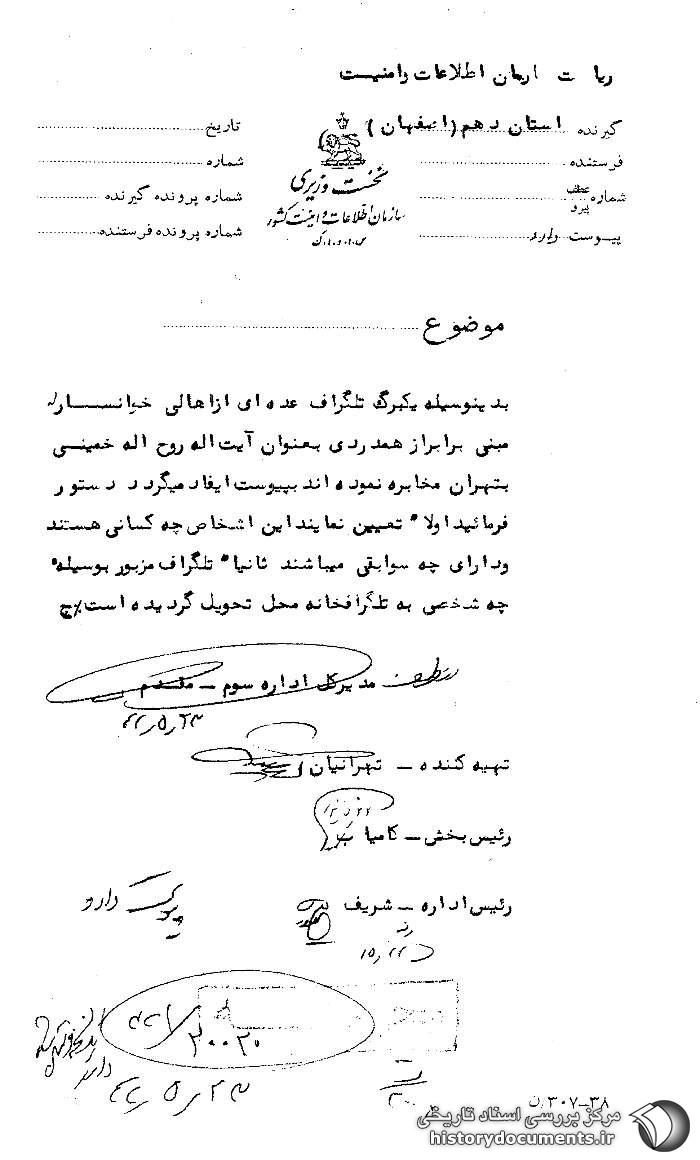 ریاست سازمان اطلاعات و امنیت
گیرنده استان دهم (اصفهان)
فرستنده
شماره عطف پیرو
پیوست دارد
نخست وزیری
سازمان اطلاعات و امنیت کشور
س.ا.و.ا.ک
تاریخ
شماره
شماره پرونده گیرنده
شماره پرونده فرستنده
موضوع
بدینوسیله یکبرگ تلگراف عده ای از اهالی خوانسار که
مبنی برابراز همدردی بعنوان آیت اله روح اله خمینی
بتهران مخابره نموده اند بپیوست ایفاد میگردد دستور
فرمائید اولا" تعیین نمایند این اشخاص چه کسانی هستند
ودارای چه سوابقی میباشند ثانیا" تلگراف مزبور بوسیله
چه شخصی به تلگرافخانه محل تحویل گردیده است%چ
مدیرکل اداره سوم - مقدم
۴۲٫۵٫۲۳
تهیه کننده - تهرانیان
رئیس بخش - کامیاب
رئیس اداره - شریف
پیوست دارد
۳۰۰۲۰
۴۲٫۵٫۲۳
۳۸-۳۰۷ن
مرکز بررسی اسناد تاریخی
historydocuments.ir